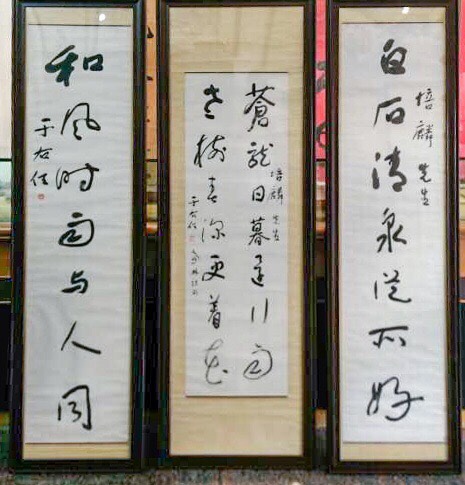 白石清泉從所好
培麟先生
蒼龍日暮還行雨
老樹春深更着花
培麟先生
于右任
和風时雨与人同
于右任